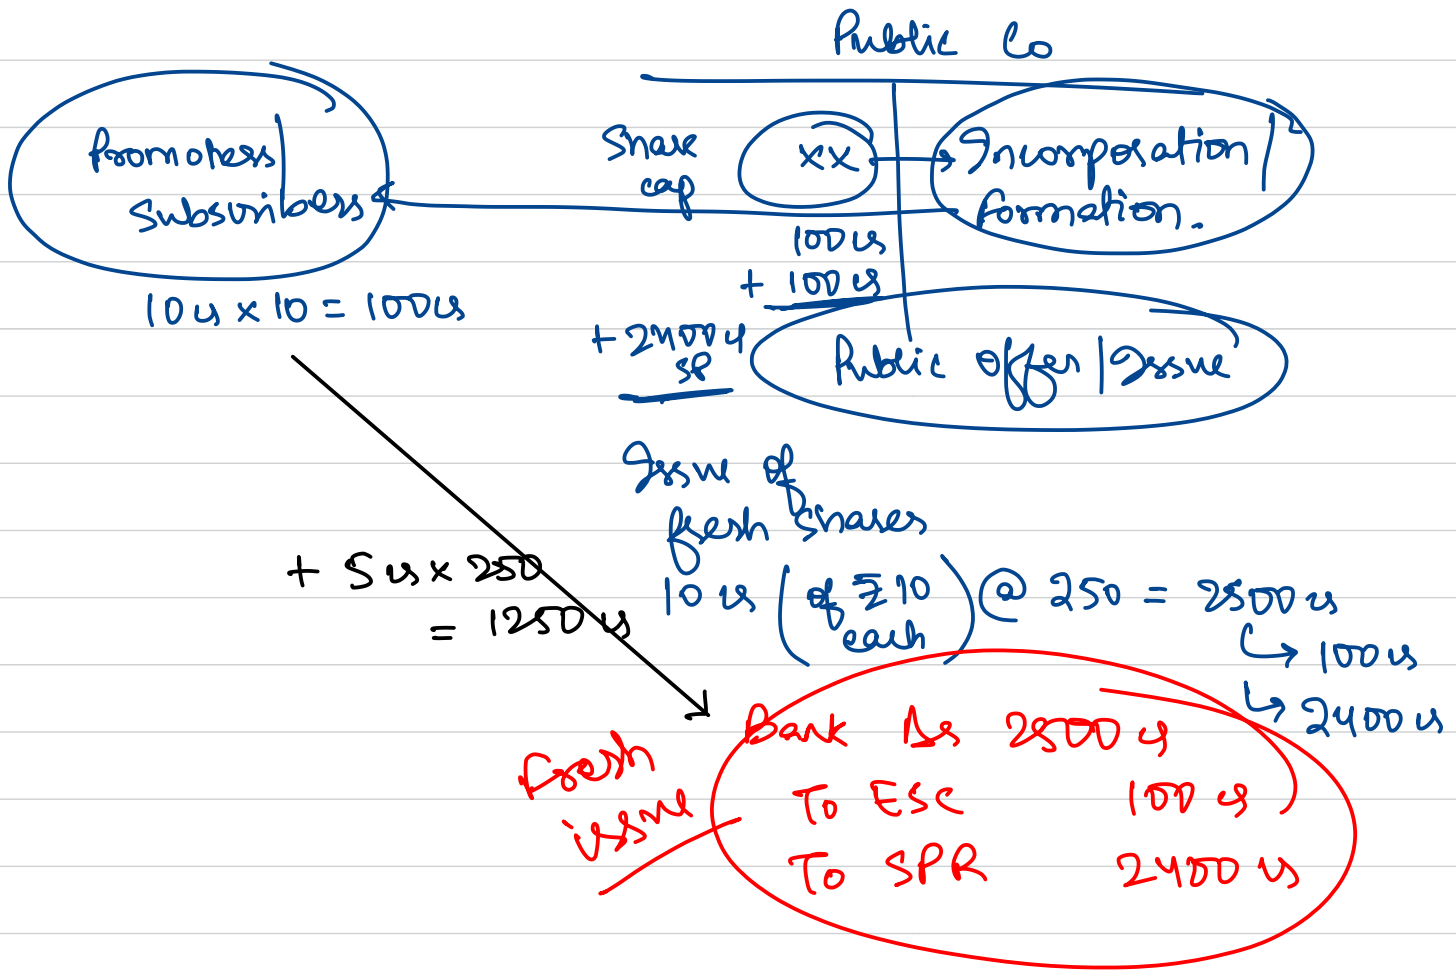 Public Co
Promoters/
Subscribers
10 cr × 10 = 100 cr
Share
cap
xx
Incorporation/
formation.
100 cr
+ 100 cr
+ 2400 cr
SP
Public Offer/Issue
Issue of
fresh shares
10 cr (of ₹10
each) @ 250 = 2500 cr
100 cr
2400 cr
+ 5 cr × 250
= 1250 cr
Fresh
issue
Bank Dr 2500 cr
To ESC 100 cr
To SPR 2400 cr